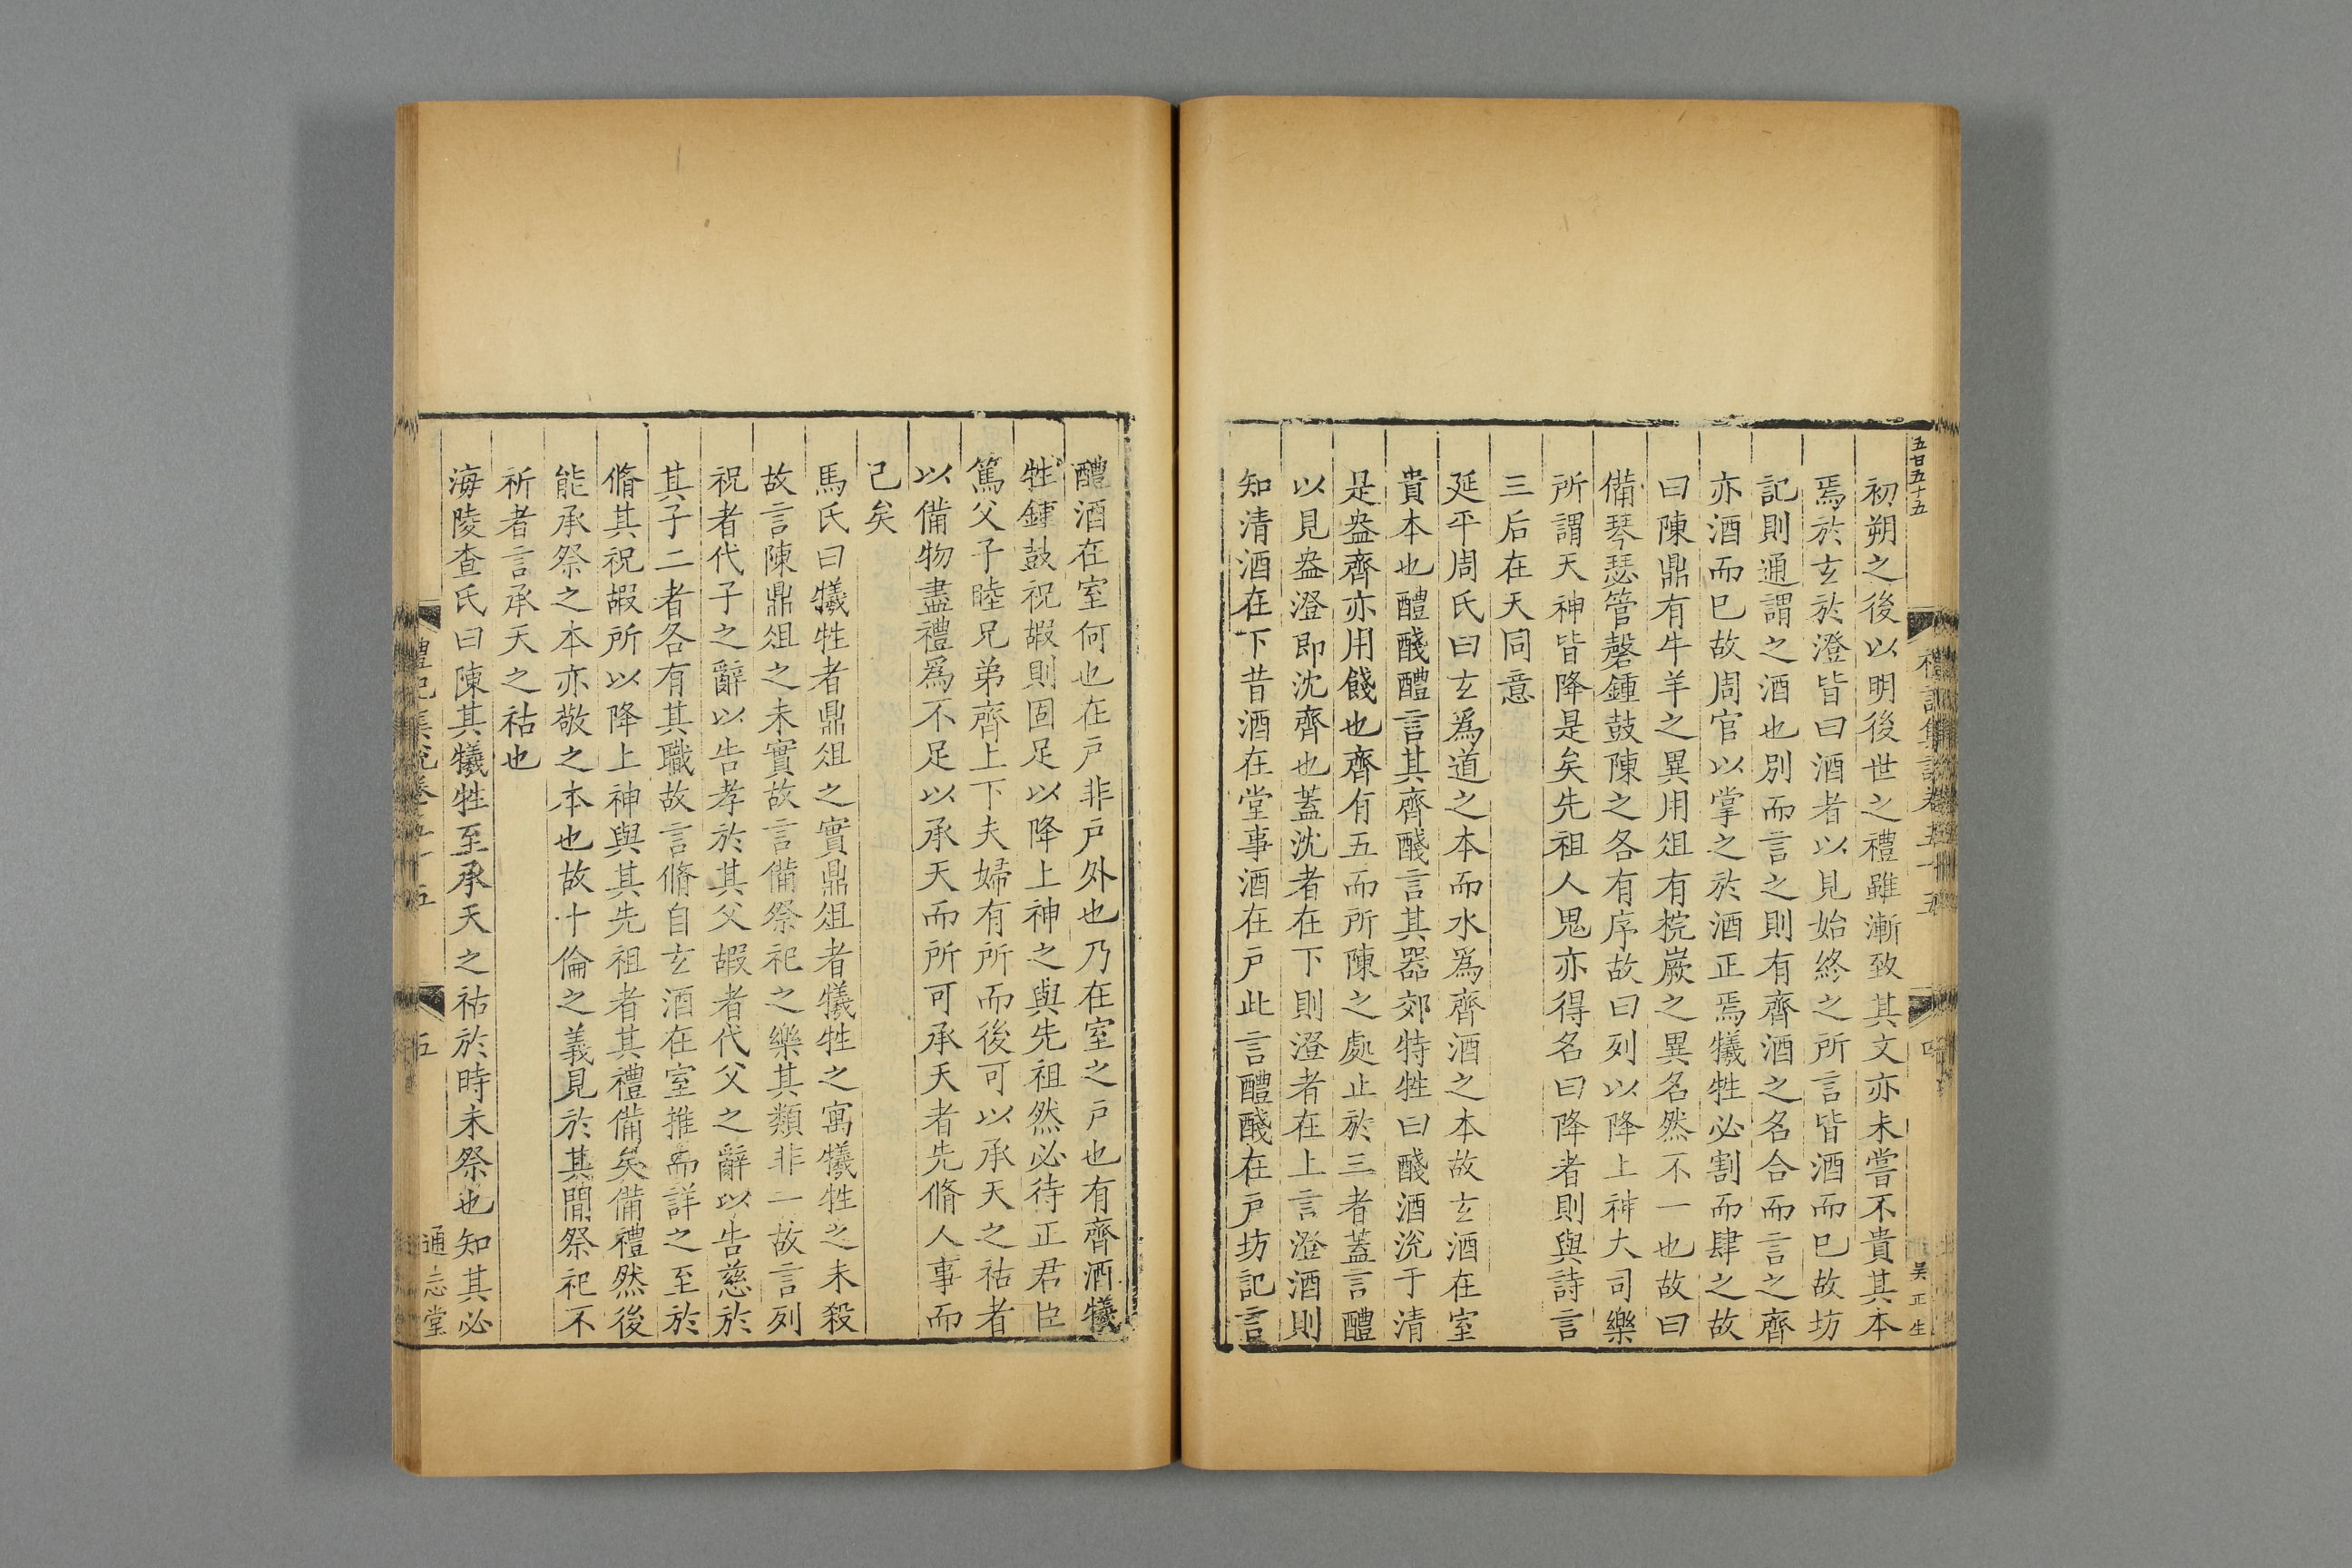 五廿五十五
禮記集說卷五十五
四
吴正生
初朔之後以明後世之禮雖漸致其文亦未嘗不貴其本
焉於玄於澄皆曰酒者以見始終之所言皆酒而巳故坊
記則通謂之酒也別而言之則有齊酒之名合而言之齊
亦酒而巳故周官以掌之於酒正焉犧牲必割而肆之故
曰陳鼎有牛羊之異用俎有梡嶡之異名然不一也故曰
備琴瑟管磬鍾鼓陳之各有序故曰列以降上神大司樂
所謂天神皆降是矣先祖人鬼亦得名曰降者則與詩言
三后在天同意
延平周氏曰玄爲道之本而水爲齊酒之本故玄酒在室
貴本也醴醆醴言其齊醆言其器郊特牲曰醆酒涗于清
是盎齊亦用餞也齊有五而所陳之處止於三者蓋言醴
以見盎澄即沈齊也蓋沈者在下則澄者在上言澄酒則
知清酒在下昔酒在堂事酒在戶此言醴醆在戶坊記言
醴酒在室何也在戶非戶外也乃在室之戶也有齊酒犧
牲鍾鼓祝嘏則固足以降上神之與先祖然必待正君臣
篤父子睦兄弟齊上下夫婦有所而後可以承天之祜者
以備物盡禮爲不足以承天而所可承天者先脩人事而
己矣
馬氏曰犧牲者鼎俎之實鼎俎者犧牲之寓犧牲之未殺
故言陳鼎俎之未實故言備祭祀之樂其類非一故言列
祝者代子之辭以告孝於其父嘏者代父之辭以告慈於
其子二者各有其職故言脩自玄酒在室推而詳之至於
脩其祝嘏所以降上神與其先祖者其禮備矣備禮然後
能承祭之本亦敬之本也故十倫之義見於其間祭祀不
祈者言承天之祜也
海陵查氏曰陳其犧牲至承天之祜於時未祭也知其必
禮記集說卷五十五
五
通志堂